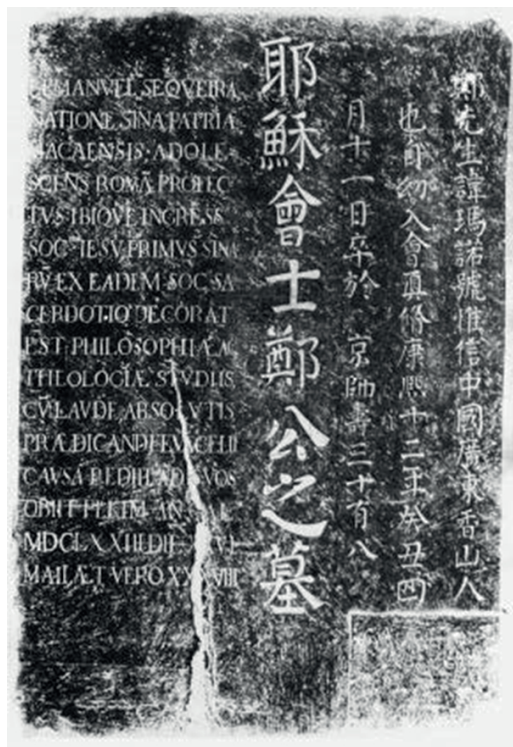 鄭先生諱瑪諾號惟信中國廣東香山人
也自幼入會真脩康熙十二年癸丑四
月十一日卒於 京師壽三十有八
耶穌會士鄭公之墓
EMANVEL SEQVEIRA
NATIONE SINA PATRIA
MACAENSIS ADOLE
SCENS ROMÃ PROFEC
TVS IBIQVE INGRESS
SOC IESV PRIMVS SINA
RV̄ EX EADEM SOC SA
CERDOTIO DECORAT
EST PHILOSOPHIÆ AC
THEOLOGIÆ STVDIIS
CV̄ LAVDE ABSOLVTIS
PRÆDICANDI EVÃGELII
CAVSA REDIIT AD SVOS
OBIIT PEKIM AN
MDCLXXIII DIE
MAII ÆT VERO XXXVIII